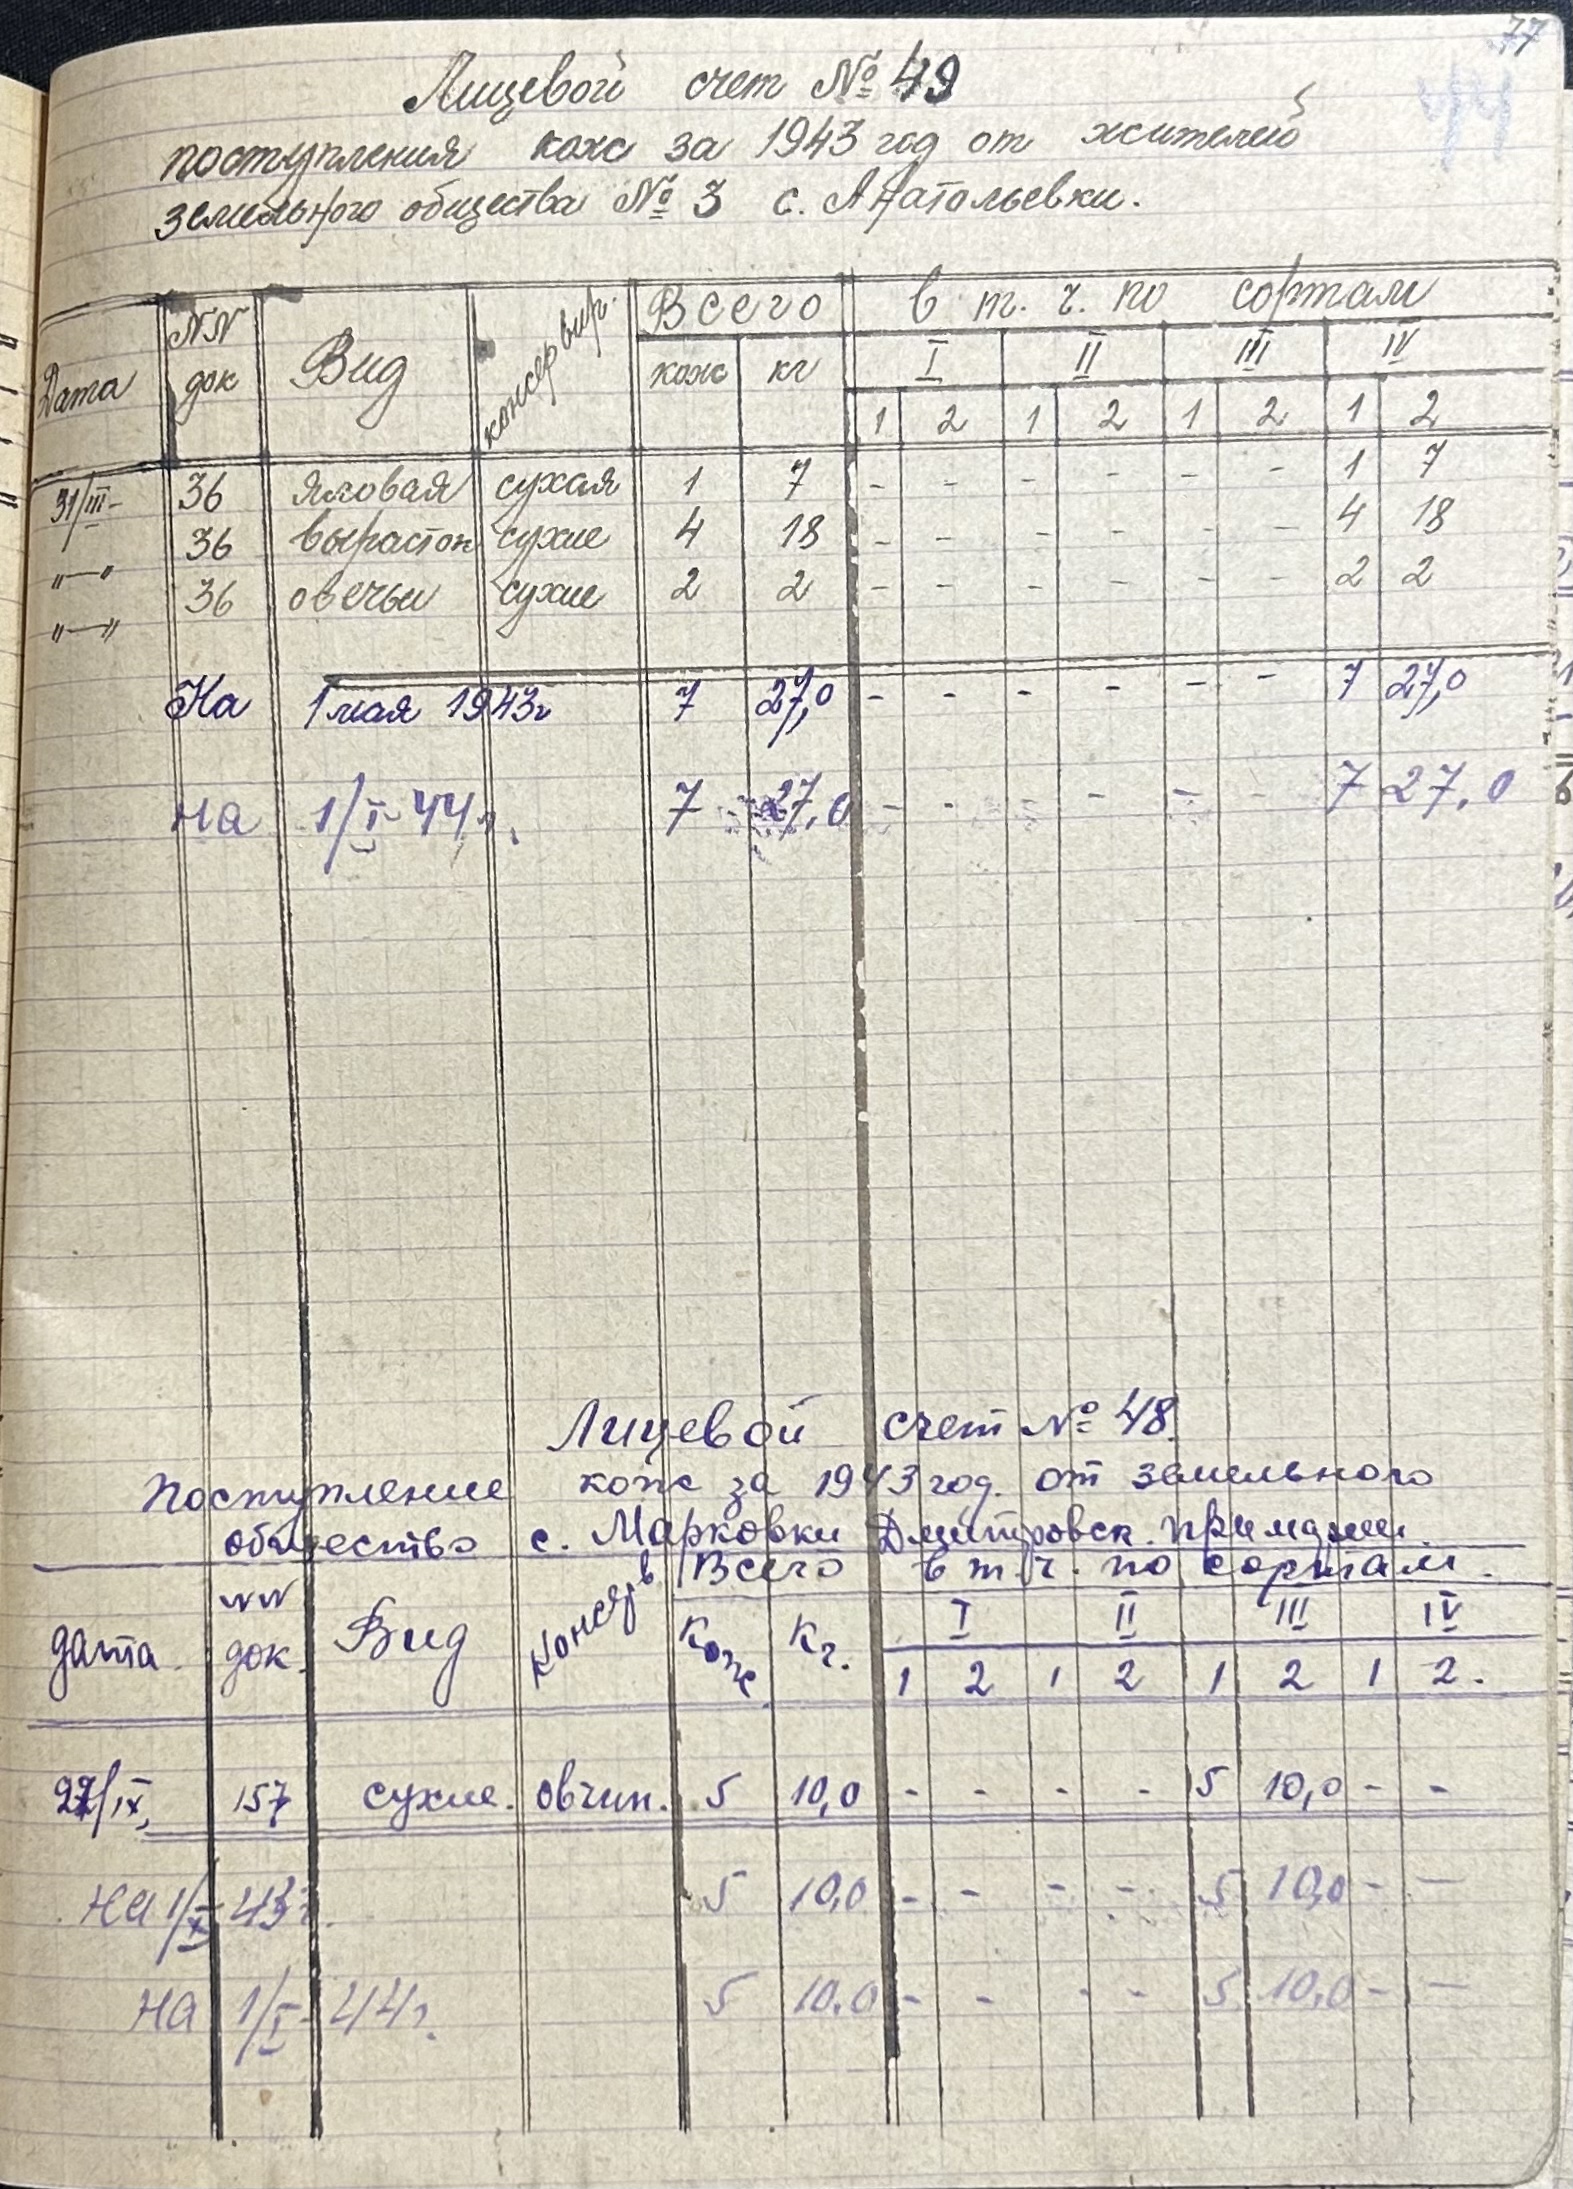 77
44
Лицевой счет № 49
поступления кож за 1943 год от жителей
земельного общества № 3 с. Анатольевки.
Дата NN док Вид консервир. Всего в т. ч. по сортам
кож кг I II III IV
1 2 1 2 1 2 1 2
31/III- 36 яловая сухая 1 7 - - - - - - 1 7
"—" 36 вырасток сухие 4 18 - - - - - - 4 18
"—" 36 овечьи сухие 2 2 - - - - - - 2 2
На 1 мая 1943г 7 27,0 - - - - - - 7 27,0
на 1/I-44г. 7 27,0 - - - - - - 7 27,0
Лицевой счет № 48.
Поступление кож за 1943 год. от земельного
общество с. Марковки Дмитровск.
дата. NN док. Вид Консерв Всего в т. ч. по сортам.
Кож. Кг. I II III IV
1 2 1 2 1 2 1 2.
27/IX, 157 сухие. овчин. 5 10,0 - - - - 5 10,0 - -
на 1/X-43г. 5 10,0 - - - - 5 10,0 - -
на 1/I-44г. 5 10,0 - - - - 5 10,0 - -